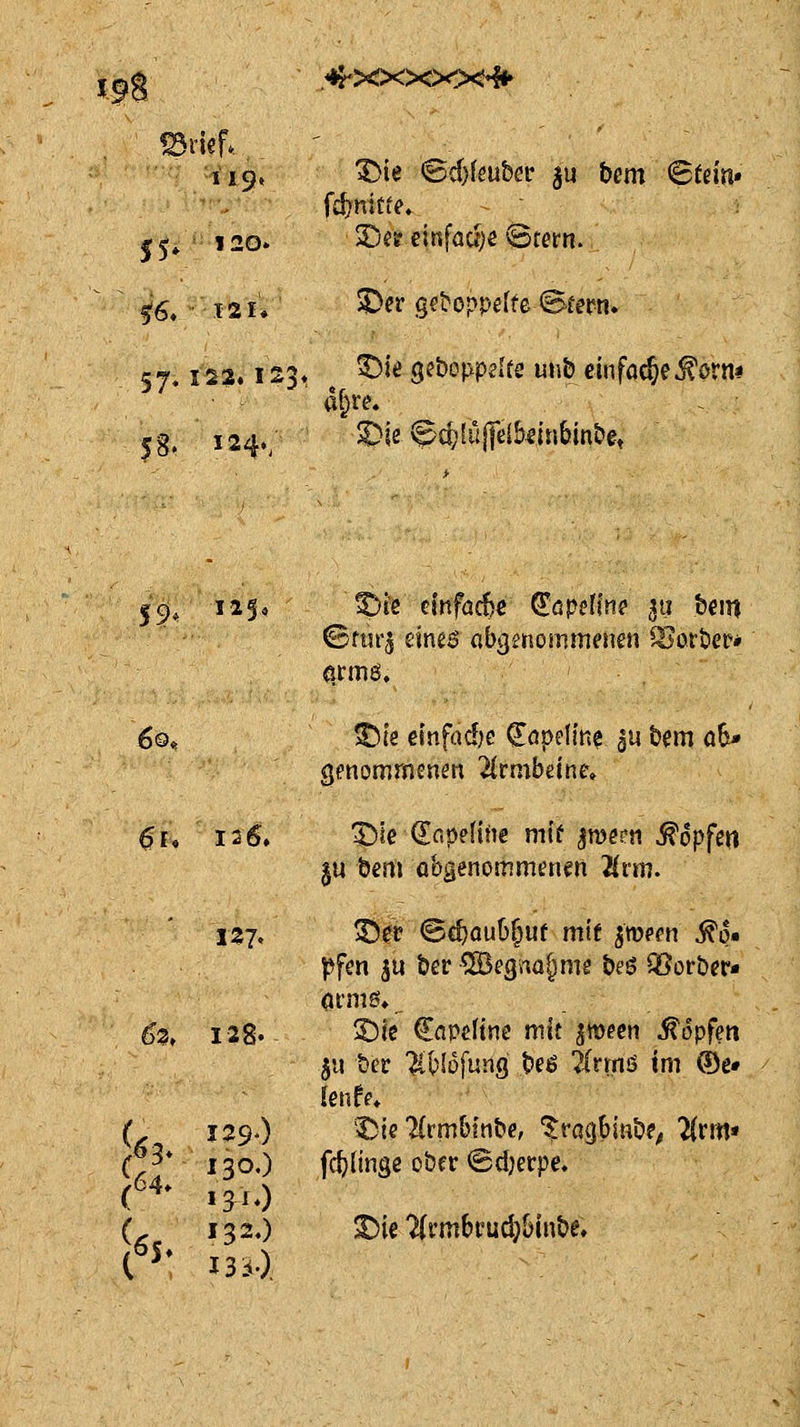 198
Brief.
119. Die Schleuder zu dem Stein-
schnitte.
55. 120. Der einfache Stern.
56. 121. Der gedoppelte Stern.
57. 122. 123. Die gedoppelte und einfache Korn-
ähre.
58. 124. Die Schlüsselbeinbinde.
59. 125. Die einfache Capeline zu dem
Sturz eines abgenommenen Vorder-
arms.
60. Die einfache Capeline zu dem ab-
genommenen Armbeine.
61. 126. Die Capeline mit zween Köpfen
zu dem abgenommenen Arm.
127. Der Schaubhut mit zween Kö-
pfen zu der Wegnahme des Vorder-
arms.
62. 128. Die Capeline mit zween Köpfen
zu der Ablösung des Arms im Ge-
lenke.
(63. 129.) Die Armbinde, Tragbinde, Arm-
( 130.) schlinge oder Scherpe.
(64. 131.)
(65. 132.) Die Armbruchbinde.
( 133.)